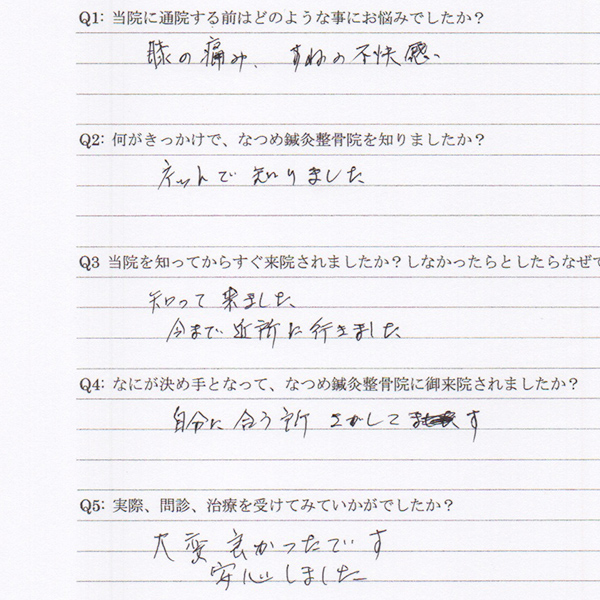 Q1: 当院に通院する前はどのような事にお悩みでしたか？
膝の痛み、すねの不快感、
Q2: 何がきっかけで、なつめ鍼灸整骨院を知りましたか？
ネットで知りました
Q3 当院を知ってからすぐ来院されましたか？しなかったらとしたらなぜで
知って来ました、
今まで近所に行きました
Q4: なにが決め手となって、なつめ鍼灸整骨院に御来院されましたか？
自分に合う所 さがして ます
Q5: 実際、問診、治療を受けてみていかがでしたか？
大変良かったです
安心しました